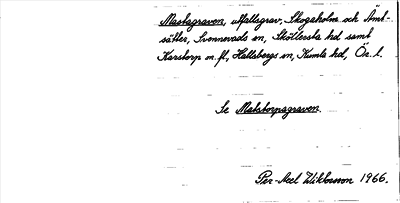 Mastagraven, utfallsgrav, Skogaholm och Åmt-
sätter, Svennevads sn, Sköllersta hd samt
Karstorp m.fl., Hallsbergs sn, Kumla hd, Ör. l.
Se Matstorpagraven.
Per-Axel Wiktorsson 1966.